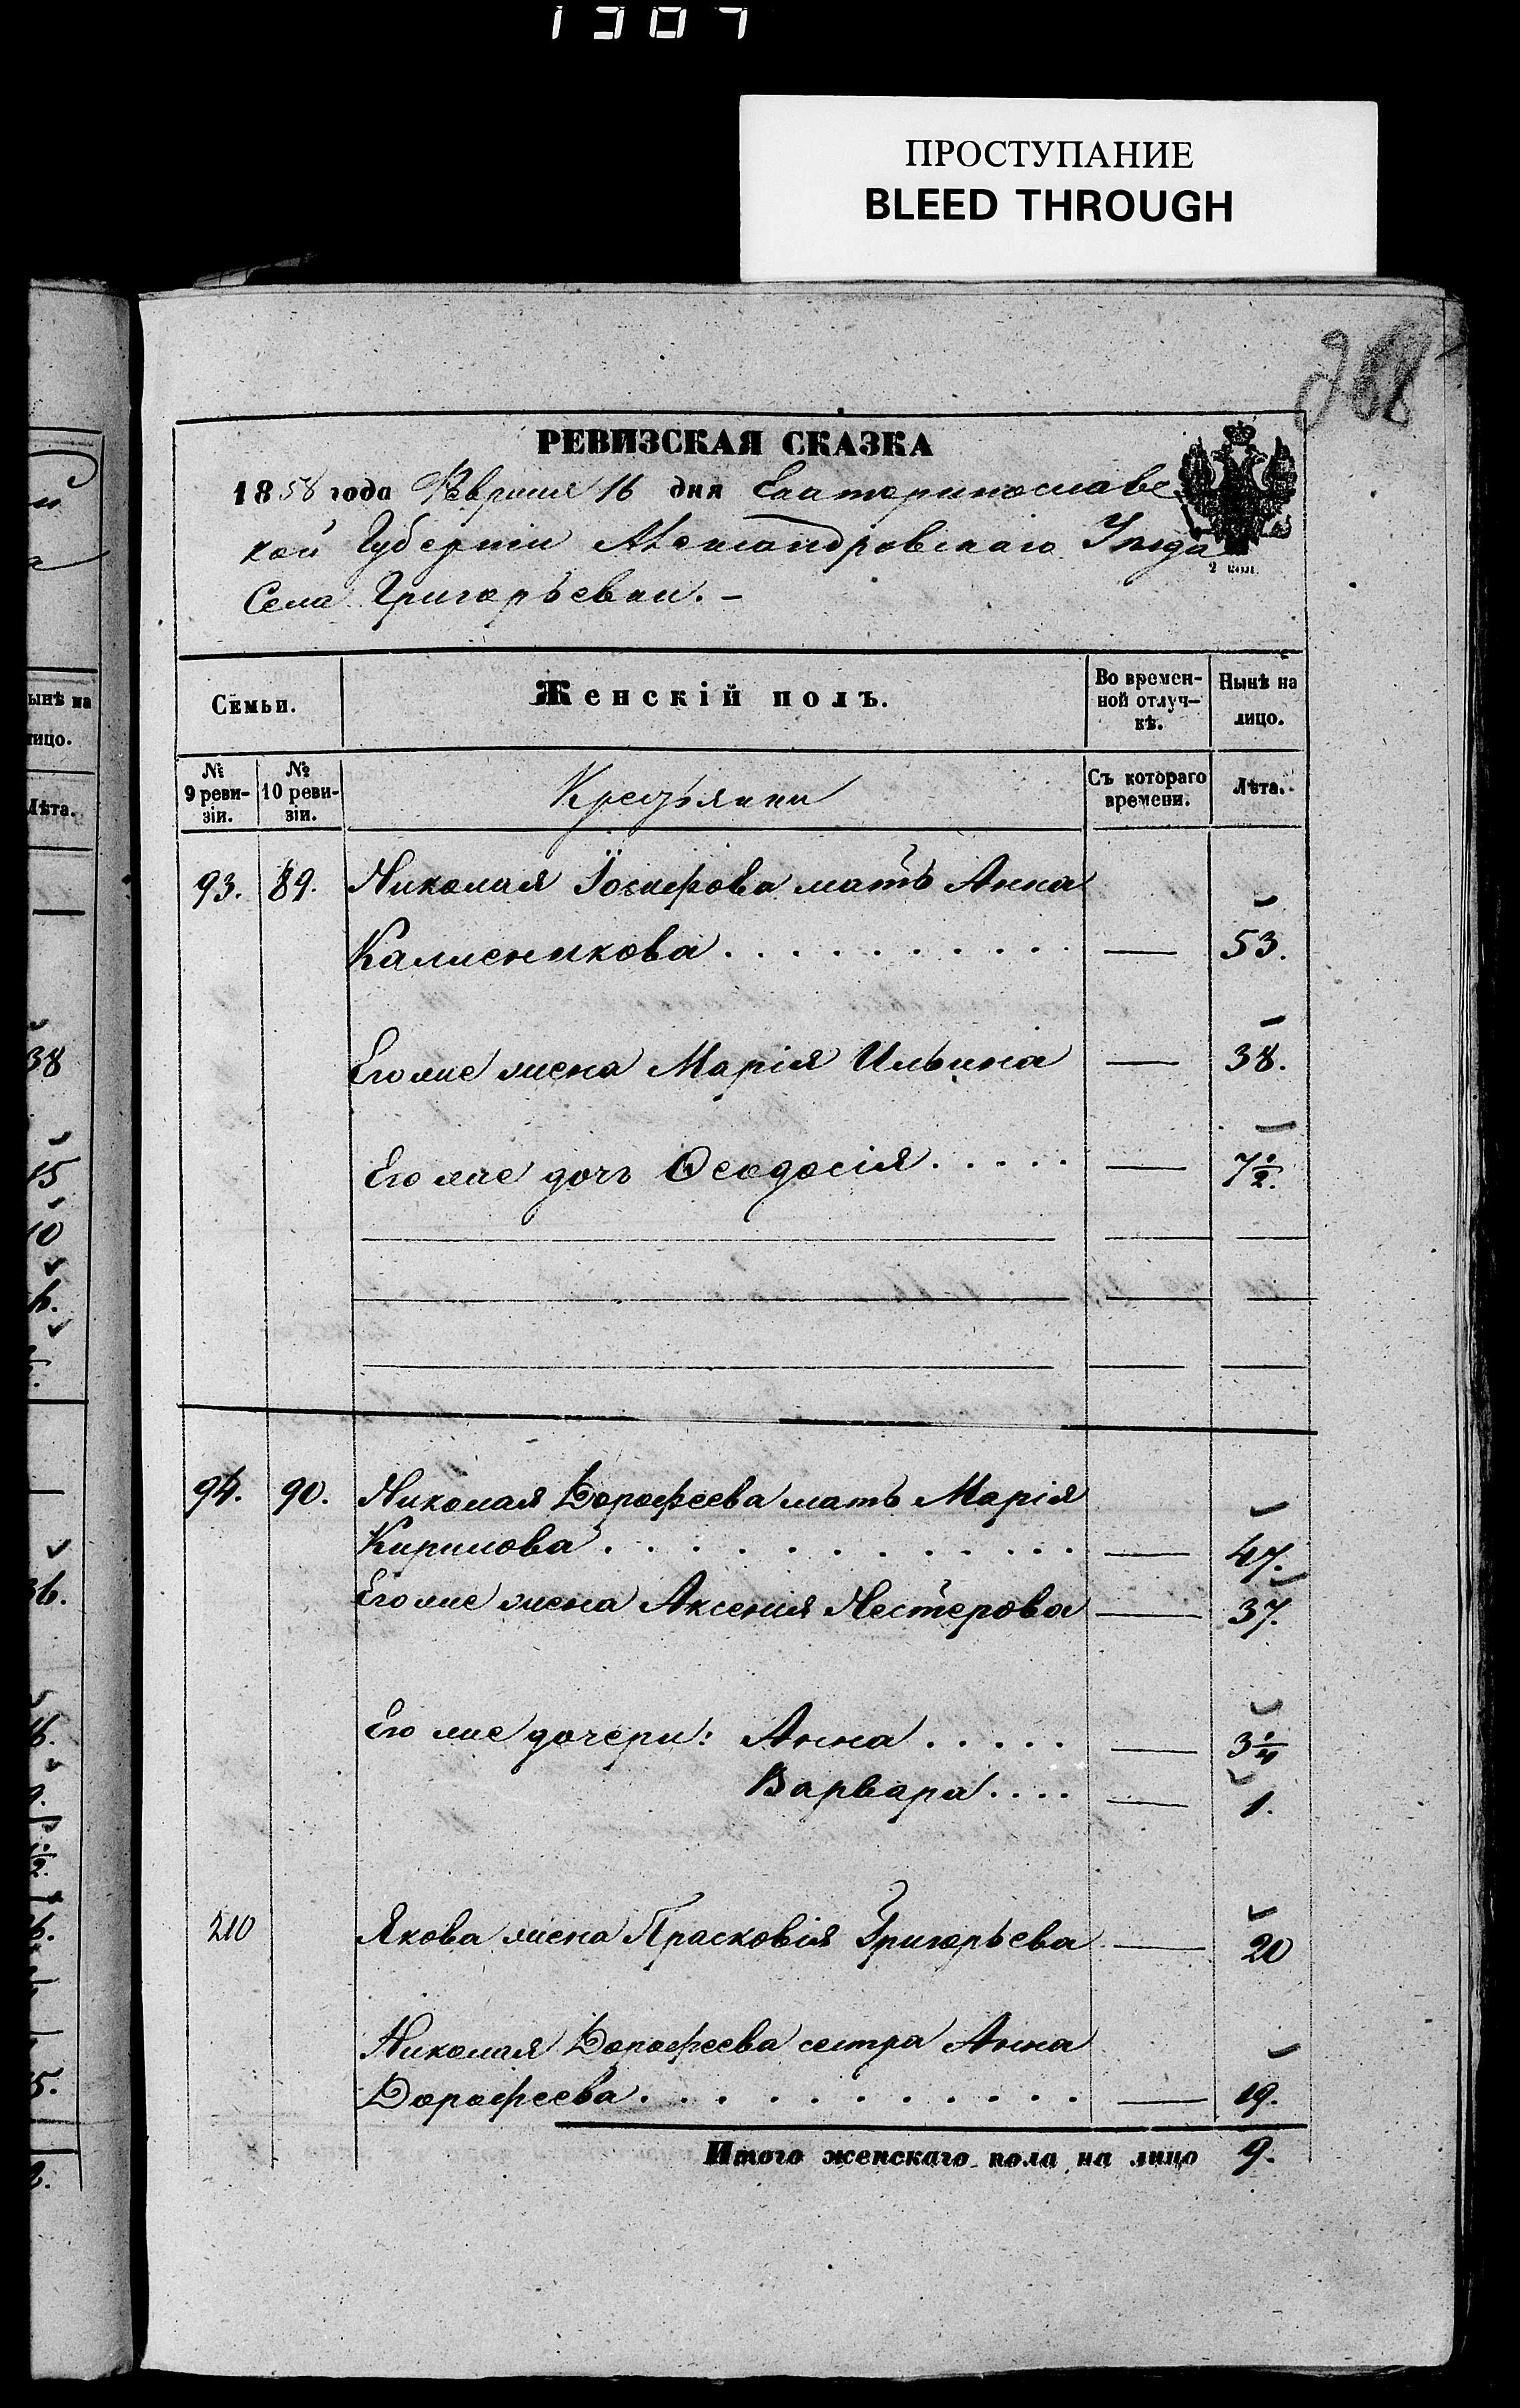 1307
ПРОСТУПАНИЕ
BLEED THROUGH
268
РЕВИЗСКАЯ СКАЗКА
1858 года Февраля 16 дня Екатеринославс
кой Губерніи Александровскаго Уѣзда
2 коп.
Села Григорьевки. –
Семьи. Женскій полъ. Во времен-ной отлуч-кѣ. Нынѣ на лицо.
№ 9 реви-зіи. № 10 реви-зіи. Крестьянки Съ котораго времени. Лѣта.
93. 89. Николая Іосифова мать Анна
Калиникова . . . . . . . . . — 53.
Его же жена Марія Ильина — 38.
Его же дочь Ѳеодосія . . . . . — 7 1/2.
94. 90. Николая Дорофеева мать Марія
Кирилова . . . . . . . . . . . — 47.
Его же жена Аксенія Нестерова — 37.
Его же дочери: Анна . . . . . — 3 1/4
Варвара . . . . — 1.
210 Якова жена Прасковія Григорьева — 20
Николая Дорофеева сестра Анна
Дорофеева . . . . . . . . . . — 19.
Итого женскаго пола на лицо 9.
ынѣ на
ицо.
Лѣта.
38
15
10
36.